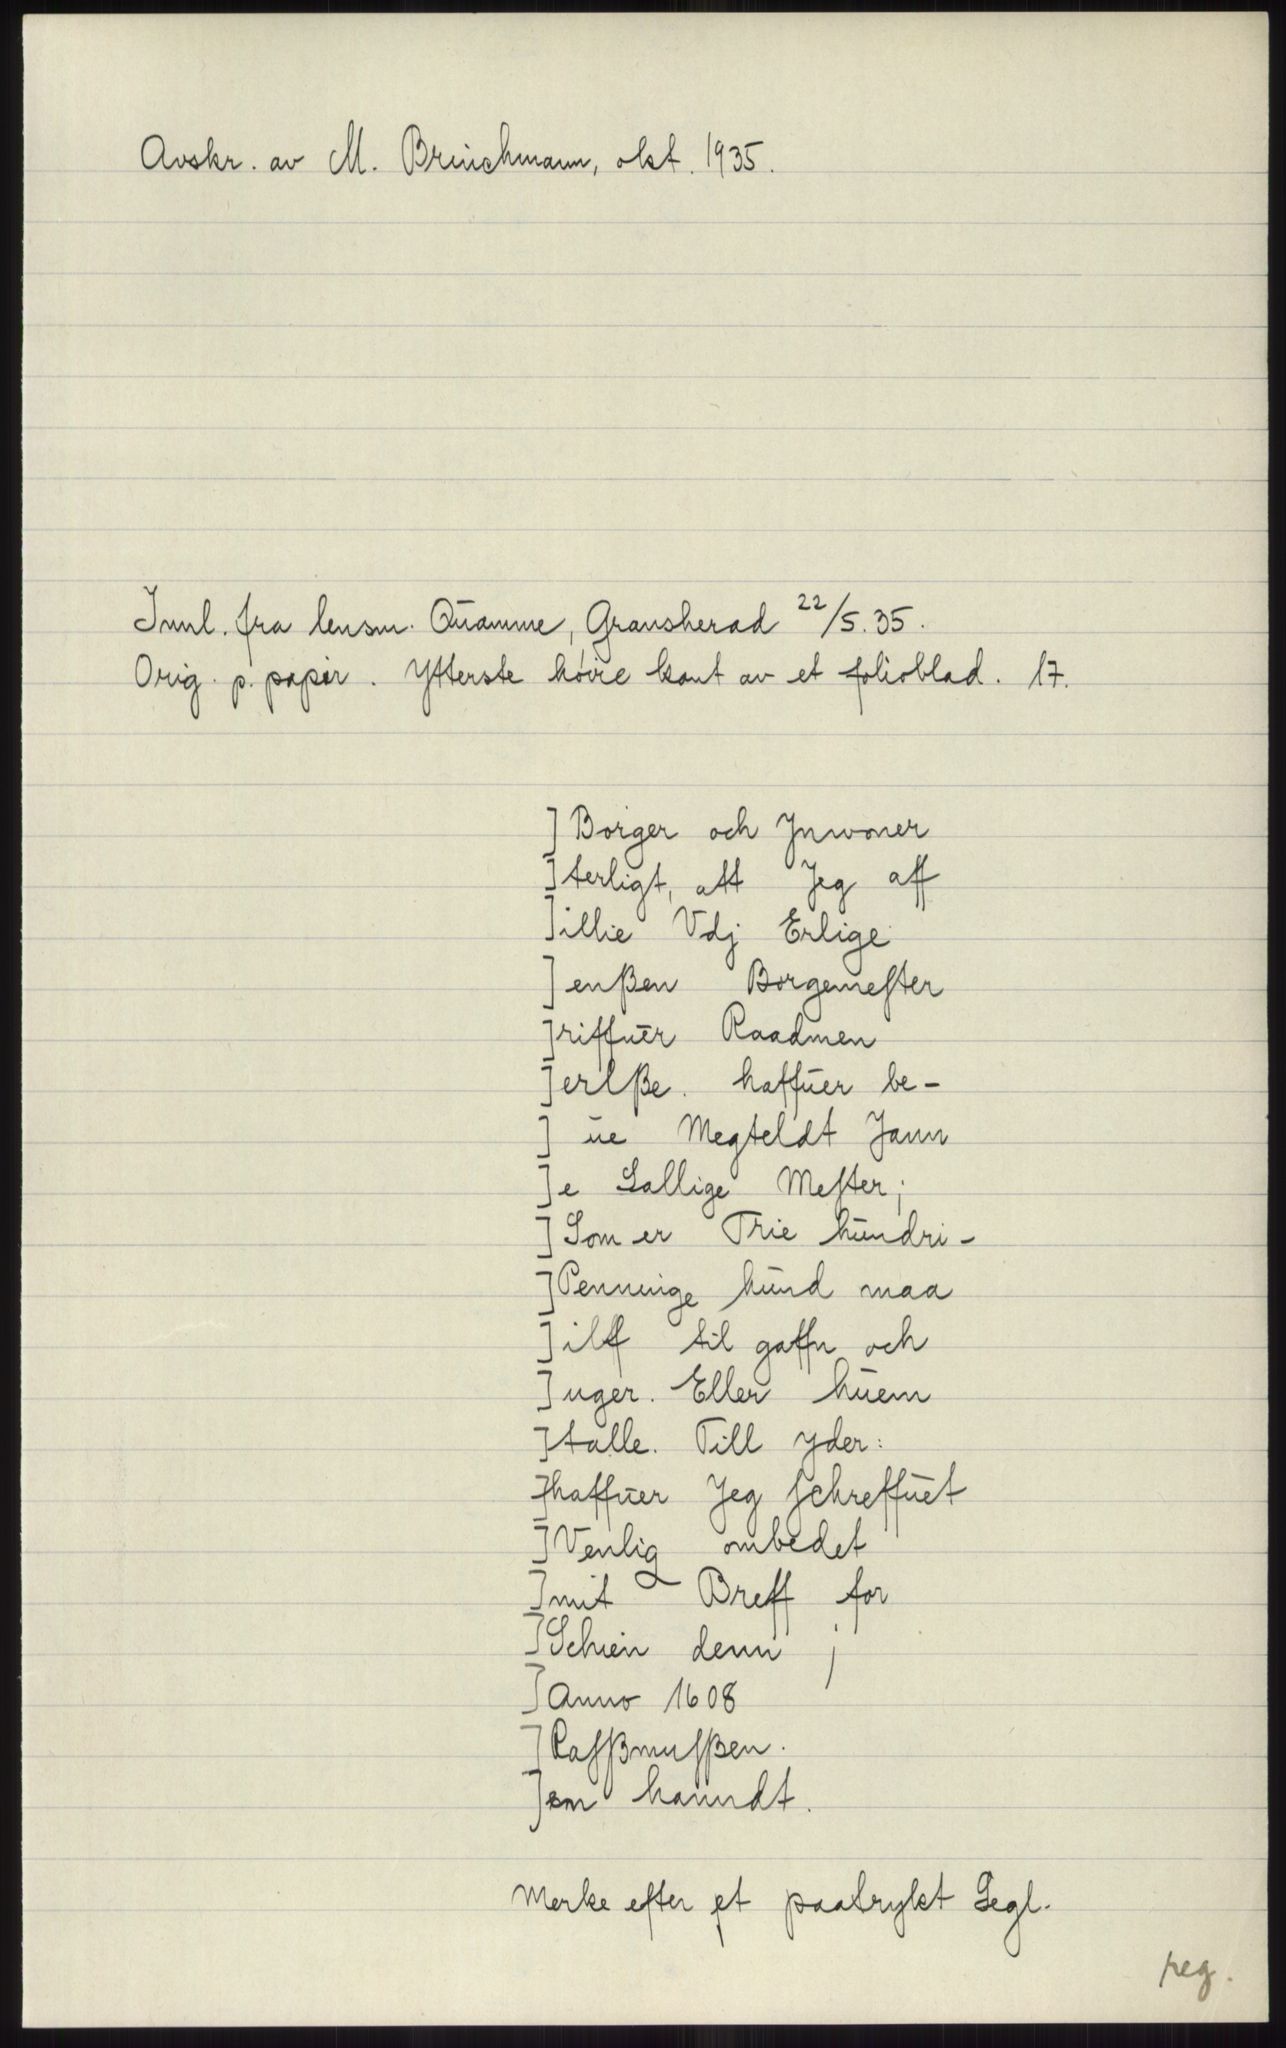 Avskr. av M. Brinchmann, okt. 1935.
Innl. fra lensm. Quamme, Gransherad 22/5. 35.
Orig. p. papir. Ytterste höire kant av et folioblad. 17.
] Borger och Jnwoner
] terligt, att Jeg aff
] illie Vdj Erlige
] enßen Borgemeſter
] riffuer Raadmen
] erlße. haffuer be-
] ue Megteldt Jann
] e Sallige Meſter;
] Som er Trie hundri-
] Penninge hund maa
] ilff til gaffn och
] uger. Eller huem
] talle. Till yder:
] haffuer Jeg ſchreffuet
] Venlig ombedet
] mit Breff for
] Schien denn j
] Anno 1608
] Raſßmuſßen.
] en hanndt.
Merke efter et paatrykt Segl.
reg.